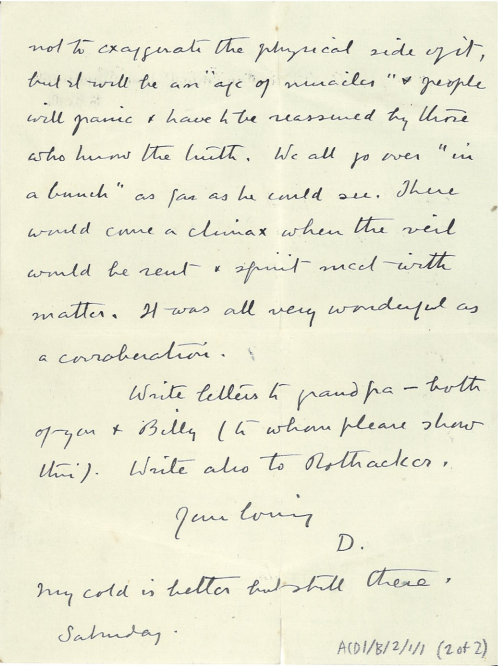 not to exaggerate the physical side of it,
but it will be an "age of miracles" & people
will panic & have to be reassured by those
who know the truth. We all go over "in
a bunch" as far as he could see. There
would come a climax when the veil
would be rent & spirit meet with
matter. It was all very wonderful as
a corroberation.
Write letters to grandpa – both
of you & Billy (to whom please show
this). Write also to Rothacker.
Your loving
D.
My cold is better but still there.
Saturday.
ACD1/B/2/1/1 (2 of 2)